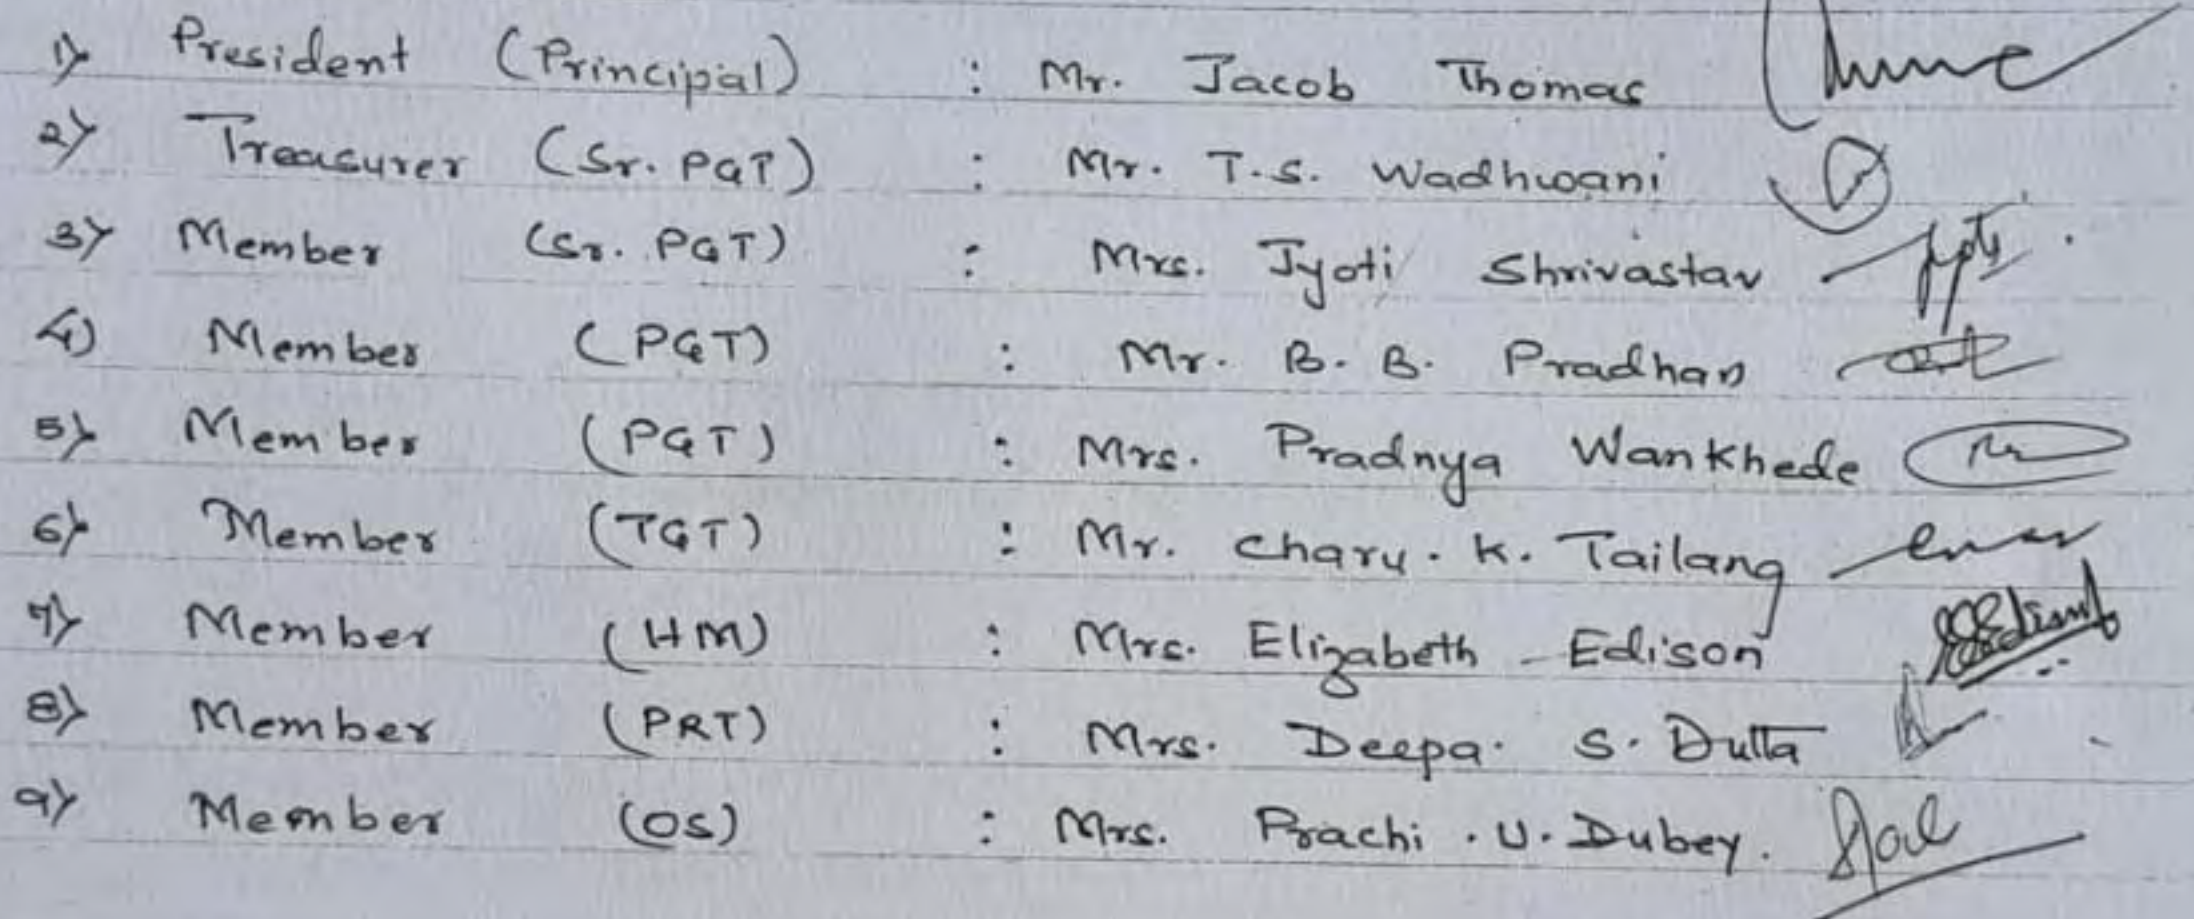 1) President (Principal) : Mr. Jacob Thomas
2) Treasurer (Sr. PGT) : Mr. T.S. Wadhwani
3) Member (Sr. PGT) : Mrs. Jyoti Shrivastav
4) Member (PGT) : Mr. B. B. Pradhan
5) Member (PGT) : Mrs. Pradnya Wankhede
6) Member (TGT) : Mr. Charu. K. Tailang
7) Member (HM) : Mrs. Elizabeth Edison
8) Member (PRT) : Mrs. Deepa. S. Dutta
9) Member (OS) : Mrs. Prachi . U. Dubey.